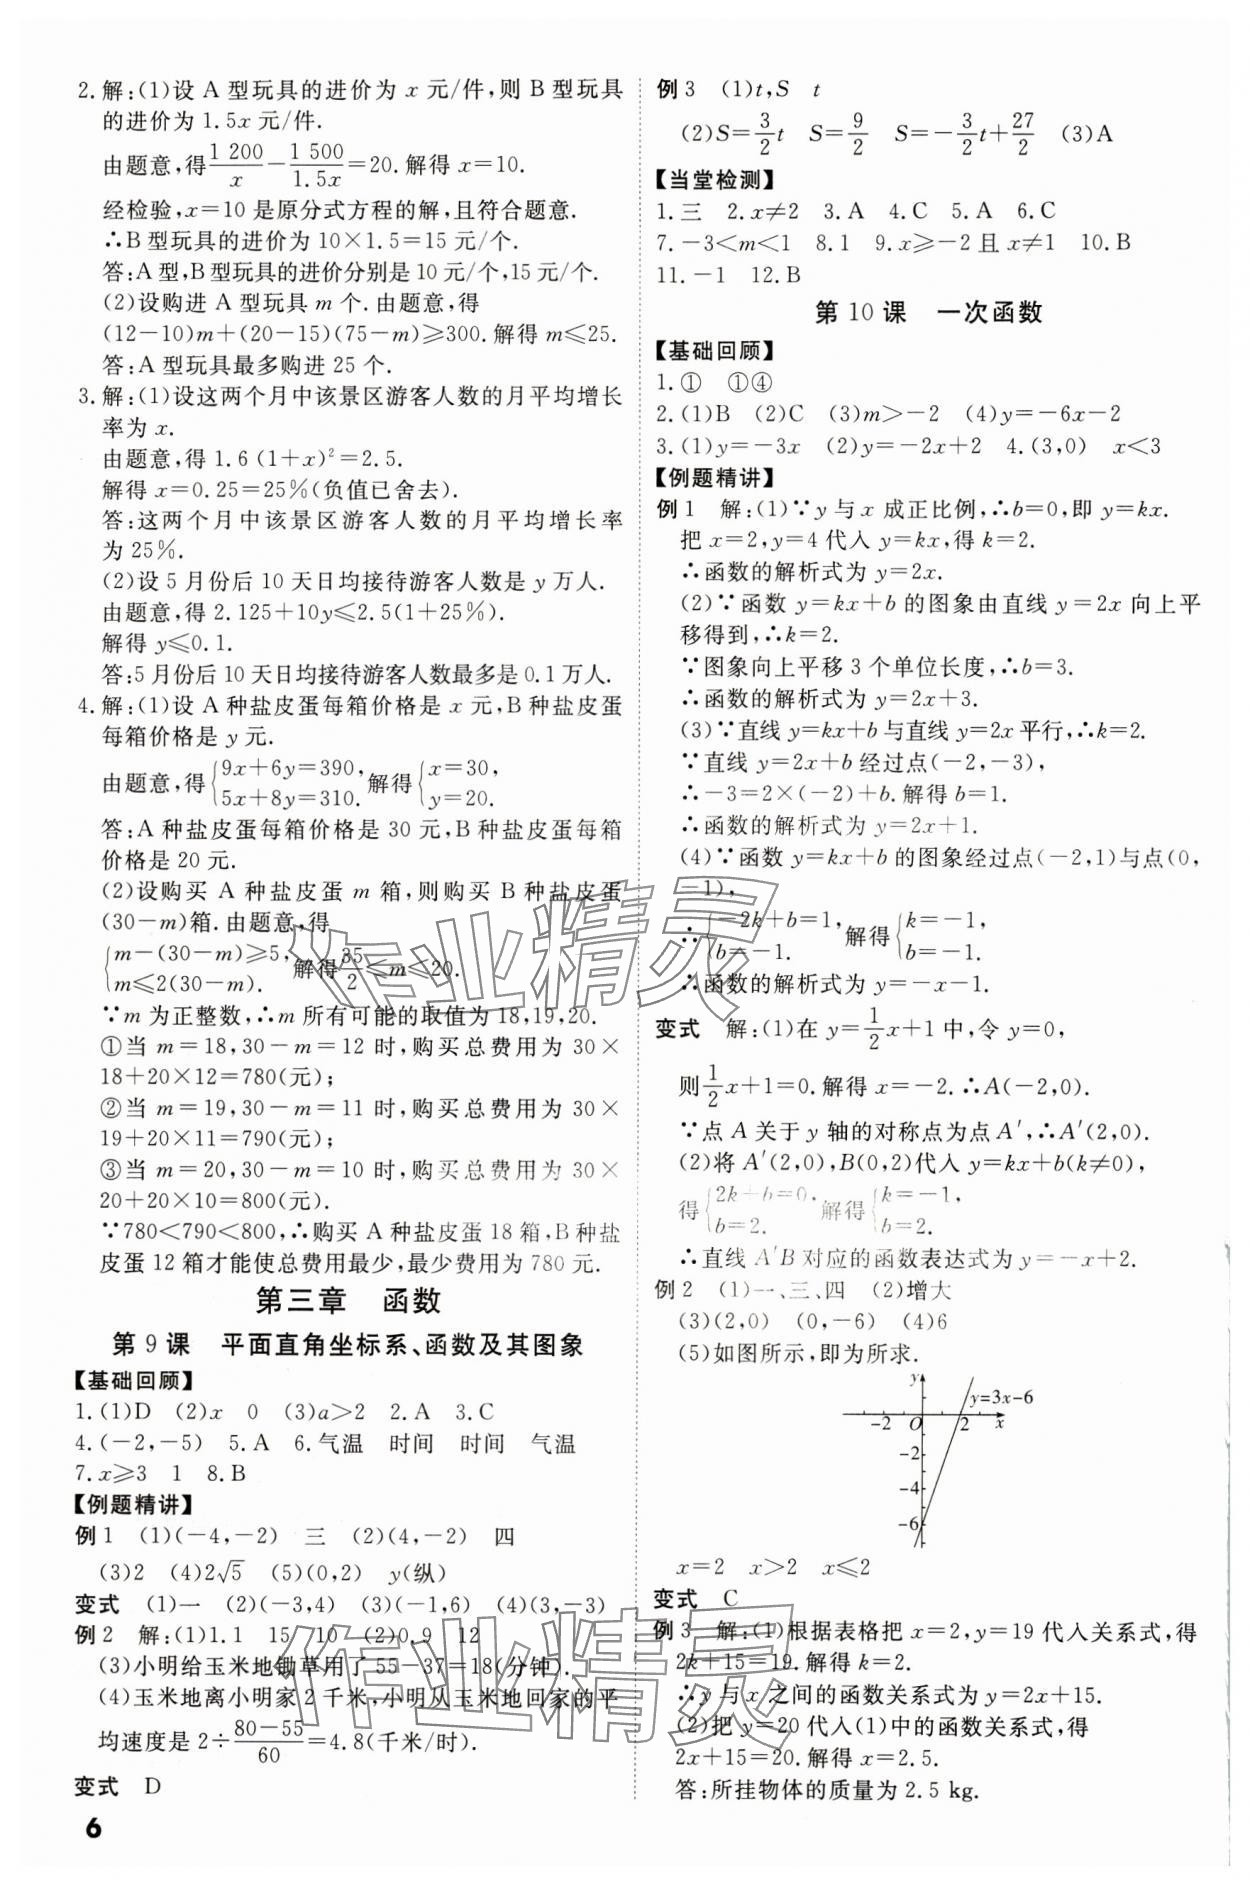 2.解:(1)设 A 型玩具的进价为 x 元/件,则 B 型玩具
的进价为 1.5x 元/件.
由题意,得 1 200/x − 1 500/1.5x =20.解得 x=10.
经检验,x=10 是原分式方程的解,且符合题意.
∴B 型玩具的进价为 10×1.5=15 元/个.
答:A 型,B 型玩具的进价分别是 10 元/个,15 元/个.
(2)设购进 A 型玩具 m 个.由题意,得
(12−10)m+(20−15)(75−m)≥300.解得 m≤25.
答:A 型玩具最多购进 25 个.
3.解:(1)设这两个月中该景区游客人数的月平均增长
率为 x.
由题意,得 1.6 (1+x)²=2.5.
解得 x=0.25=25%(负值已舍去).
答:这两个月中该景区游客人数的月平均增长率
为 25%.
(2)设 5 月份后 10 天日均接待游客人数是 y 万人.
由题意,得 2.125+10y≤2.5(1+25%).
解得 y≤0.1.
答:5 月份后 10 天日均接待游客人数最多是 0.1 万人.
4.解:(1)设 A 种盐皮蛋每箱价格是 x 元,B 种盐皮蛋
每箱价格是 y 元.
由题意,得 {9x+6y=390, 5x+8y=310. 解得 {x=30, y=20.
答:A 种盐皮蛋每箱价格是 30 元,B 种盐皮蛋每箱
价格是 20 元.
(2)设购买 A 种盐皮蛋 m 箱,则购买 B 种盐皮蛋
(30−m)箱.由题意,得
{m−(30−m)≥5, m≤2(30−m). 解得 35/2 ≤m≤20.
∵m 为正整数,∴m 所有可能的取值为 18,19,20.
①当 m=18,30−m=12 时,购买总费用为 30×
18+20×12=780(元);
②当 m=19,30−m=11 时,购买总费用为 30×
19+20×11=790(元);
③当 m=20,30−m=10 时,购买总费用为 30×
20+20×10=800(元).
∵780<790<800,∴购买 A 种盐皮蛋 18 箱,B 种盐
皮蛋 12 箱才能使总费用最少,最少费用为 780 元.
第三章 函数
第 9 课 平面直角坐标系、函数及其图象
【基础回顾】
1.(1)D (2)x 0 (3)a>2 2.A 3.C
4.(−2,−5) 5.A 6.气温 时间 时间 气温
7.x≥3 1 8.B
【例题精讲】
例 1 (1)(−4,−2) 三 (2)(4,−2) 四
(3)2 (4)2√5 (5)(0,2) y(纵)
变式 (1)一 (2)(−3,4) (3)(−1,6) (4)(3,−3)
例 2 解:(1)1.1 15 10 (2)0.9 12
(3)小明给玉米地锄草用了 55−37=18(分钟).
(4)玉米地离小明家 2 千米,小明从玉米地回家的平
均速度是 2÷ 80−55/60 =4.8(千米/时).
变式 D
6
例 3 (1)t,S t
(2)S=3/2 t S=9/2 S=−3/2 t+27/2 (3)A
【当堂检测】
1.三 2.x≠2 3.A 4.C 5.A 6.C
7.−3<m<1 8.1 9.x≥−2 且 x≠1 10.B
11.−1 12.B
第 10 课 一次函数
【基础回顾】
1.① ①④
2.(1)B (2)C (3)m>−2 (4)y=−6x−2
3.(1)y=−3x (2)y=−2x+2 4.(3,0) x<3
【例题精讲】
例 1 解:(1)∵y 与 x 成正比例,∴b=0,即 y=kx.
把 x=2,y=4 代入 y=kx,得 k=2.
∴函数的解析式为 y=2x.
(2)∵函数 y=kx+b 的图象由直线 y=2x 向上平
移得到,∴k=2.
∵图象向上平移 3 个单位长度,∴b=3.
∴函数的解析式为 y=2x+3.
(3)∵直线 y=kx+b 与直线 y=2x 平行,∴k=2.
∵直线 y=2x+b 经过点(−2,−3),
∴−3=2×(−2)+b.解得 b=1.
∴函数的解析式为 y=2x+1.
(4)∵函数 y=kx+b 的图象经过点(−2,1)与点(0,
−1),
∴{−2k+b=1, b=−1. 解得 {k=−1, b=−1.
∴函数的解析式为 y=−x−1.
变式 解:(1)在 y=1/2 x+1 中,令 y=0,
则 1/2 x+1=0.解得 x=−2.∴A(−2,0).
∵点 A 关于 y 轴的对称点为点 A′,∴A′(2,0).
(2)将 A′(2,0),B(0,2)代入 y=kx+b(k≠0),
得 {2k+b=0, b=2. 解得 {k=−1, b=2.
∴直线 A′B 对应的函数表达式为 y=−x+2.
例 2 (1)一、三、四 (2)增大
(3)(2,0) (0,−6) (4)6
(5)如图所示,即为所求.
y
y=3x−6
−2 O 2 x
−2
−4
−6
x=2 x>2 x≤2
变式 C
例 3 解:(1)根据表格把 x=2,y=19 代入关系式,得
2k+15=19.解得 k=2.
∴y 与 x 之间的函数关系式为 y=2x+15.
(2)把 y=20 代入(1)中的函数关系式,得
2x+15=20.解得 x=2.5.
答:所挂物体的质量为 2.5 kg.
作业精灵
作业精灵